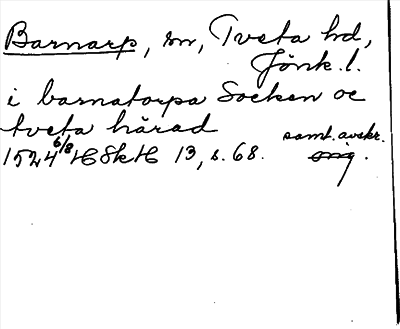 Barnarp, sn, Tveta hd,
Jönk. l.
i barnatorpa Socken oc
tveta härad
samt. avskr.
1524 6/8 HSkH 13, s. 68. orig.